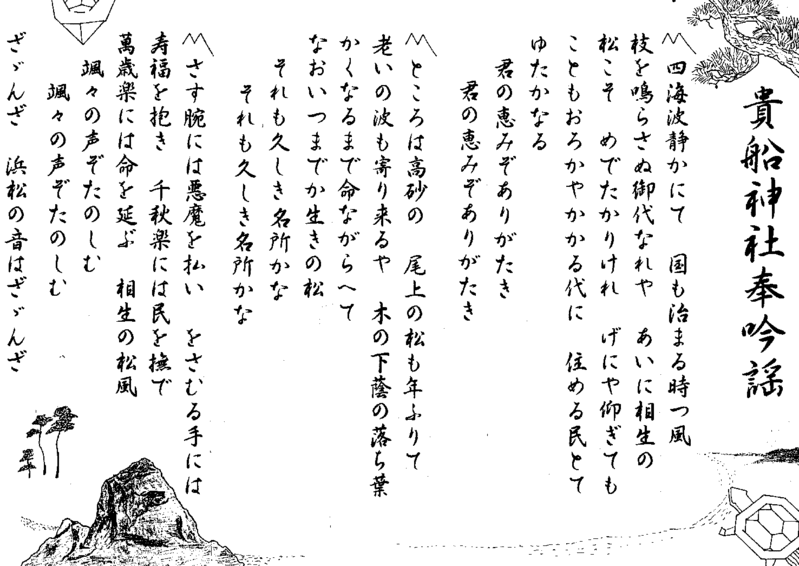 貴船神社奉吟謡
四海波静かにて　国も治まる時つ風
枝を鳴らさぬ御代なれや　あいに相生の
松こそ　めでたかりけれ　げにや仰ぎても
こともおろかやかかる代に　住める民とて
ゆたかなる
君の恵みぞありがたき
君の恵みぞありがたき
ところは高砂の　尾上の松も年ふりて
老いの波も寄り来るや　木の下蔭の落ち葉
かくなるまで命ながらへて
なおいつまでか生きの松
それも久しき名所かな
それも久しき名所かな
さす腕には悪魔を払い　をさむる手には
寿福を抱き　千秋楽には民を撫で
萬歳楽には命を延ぶ　相生の松風
颯々の声ぞたのしむ
颯々の声ぞたのしむ
ざゞんざ　浜松の音はざゞんざ